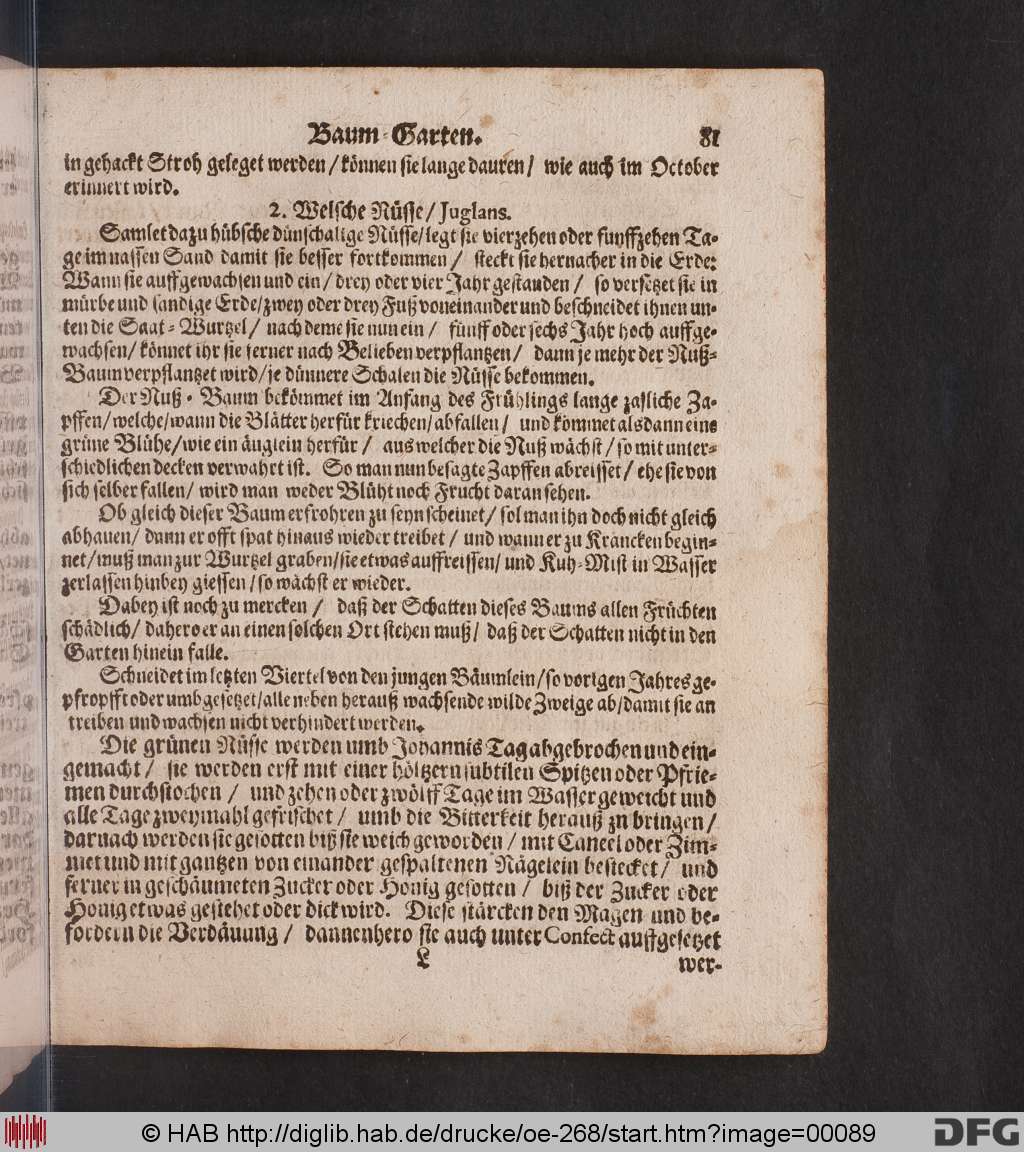 Baum-Garten. 81
in gehackt Stroh geleget werden / können sie lange dauren / wie auch im October
erinnert wird.
2. Welsche Nüsse / Juglans.
Samlet dazu hübsche dünschalige Nüsse / legt sie vierzehen oder funffzehen Ta-
ge im nassen Sand damit sie besser fortkommen / steckt sie hernacher in die Erde:
Wann sie auffgewachsen und ein / drey oder vier Jahr gestanden / so versetzet sie in
mürbe und sandige Erde / zwey oder drey Fuß voneinander und beschneidet ihnen un-
ten die Saat-Wurtzel / nach deme sie nun ein / fünff oder sechs Jahr hoch auffge-
wachsen / könnet ihr sie ferner nach Belieben verpflantzen / dann je mehr der Nuß-
Baum verpflantzet wird / je dünnere Schalen die Nüsse bekommen.
Der Nuß-Baum bekömmet im Anfang des Frühlings lange zasliche Za-
pffen / welche / wann die Blätter herfür kriechen / abfallen / und kömmet alsdann eine
grüne Blühe / wie ein äuglein herfür / aus welcher die Nuß wächst / so mit unter-
schiedlichen decken verwahrt ist. So man nun besagte Zapffen abreisset / ehe sie von
sich selber fallen / wird man weder Blüht noch Frucht daran sehen.
Ob gleich dieser Baum erfrohren zu seyn scheinet / sol man ihn doch nicht gleich
abhauen / dann er offt spat hinaus wieder treibet / und wann er zu Krancken begin-
net / muß man zur Wurtzel graben / sie etwas auffreissen / und Kuh-Mist in Wasser
zerlassen hinbey giessen / so wächst er wieder.
Dabey ist noch zu mercken / daß der Schatten dieses Baums allen Früchten
schädlich / dahero er an einen solchen Ort stehen muß / daß der Schatten nicht in den
Garten hinein falle.
Schneidet im letzten Viertel von den jungen Bäumlein / so vorigen Jahres ge-
pfropfft oder umbgesetzet / alle neben herauß wachsende wilde Zweige ab / damit sie an
treiben und wachsen nicht verhindert werden.
Die grünen Nüsse werden umb Johannis Tag abgebrochen und ein-
gemacht / sie werden erst mit einer höltzern subtilen Spitzen oder Pfrie-
men durchstochen / und zehen oder zwölff Tage im Wasser geweicht und
alle Tage zweymahl gefrischet / umb die Bitterkeit herauß zu bringen /
darnach werden sie gesotten biß sie weich geworden / mit Caneel oder Zim-
met und mit gantzen von einander gespaltenen Nägelein bestecket / und
ferner in geschäumeten Zucker oder Honig gesotten / biß der Zucker oder
Honig etwas gestehet oder dick wird. Diese stärcken den Magen und be-
fordern die Verdäuung / dannenhero sie auch unter Confect auffgesetzet
L wer-
© HAB http://diglib.hab.de/drucke/oe-268/start.htm?image=00089 DFG